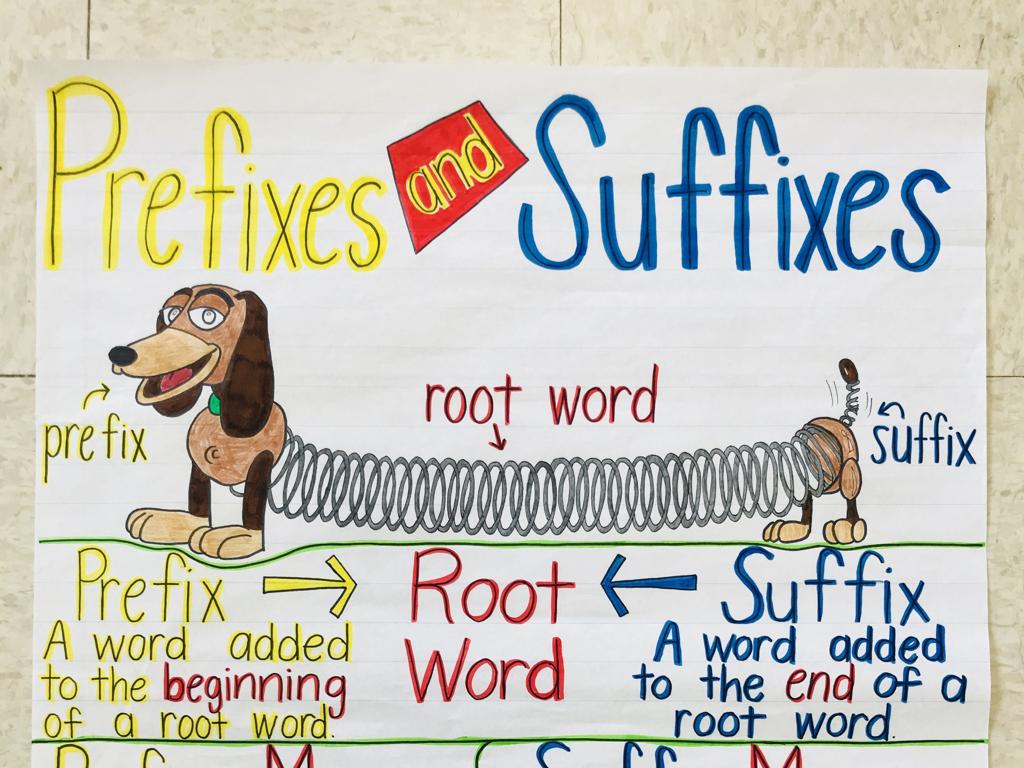 Prefixes and Suffixes
root word
prefix
suffix
Prefix → Root Word ← Suffix
A word added
to the beginning
of a root word.
A word added
to the end of a
root word.